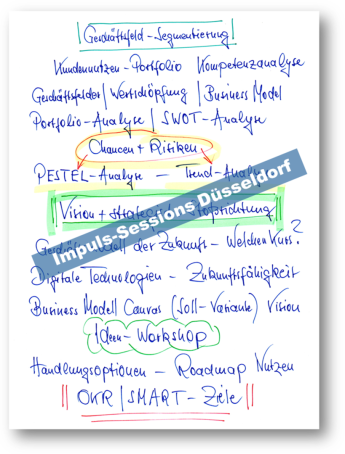 Geschäftsfeld-Segmentierung
Kundennutzen-Portfolio Kompetenzanalyse
Geschäftsfelder | Wertschöpfung | Business Model
Portfolio-Analyse | SWOT-Analyse
Chancen + Risiken
PESTEL-Analyse - Trend-Analyse
Vision +
Impuls-Sessions Düsseldorf
der Zukunft - Welchen Kurs?
Digitale Technologien - Zukunftsfähigkeit
Business Modell Canvas (Soll-Variante) Vision
Ideen-Workshop
Handlungsoptionen - Roadmap Nutzen
OKR | SMART-Ziele